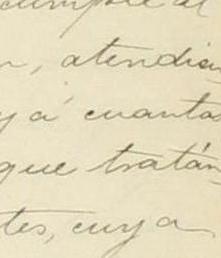 cumple al
n, atendien
y á cuantas
que tratán
tes, cuya